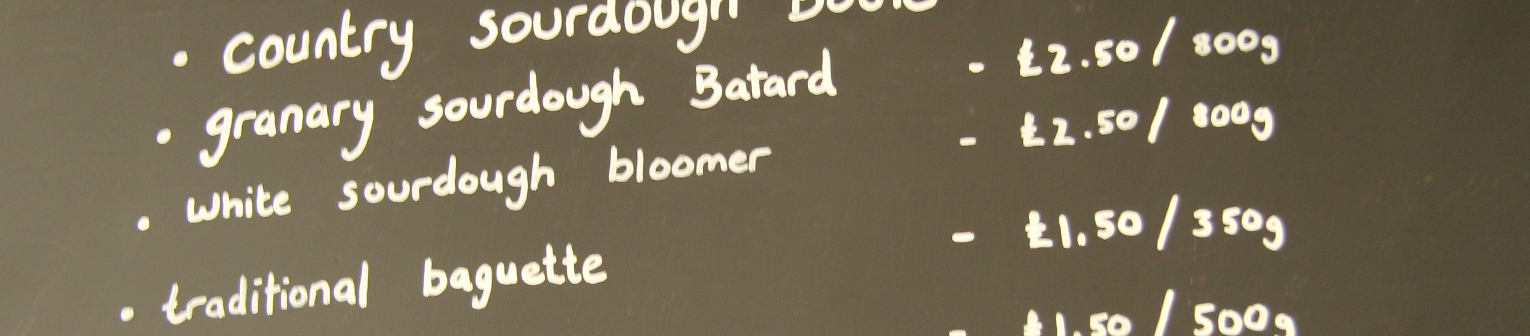 • Country sourdough Boule
• granary sourdough Batard - £2.50/800g
• White sourdough bloomer - £2.50/800g
• traditional baguette - £1.50/350g
- £1.50/500g